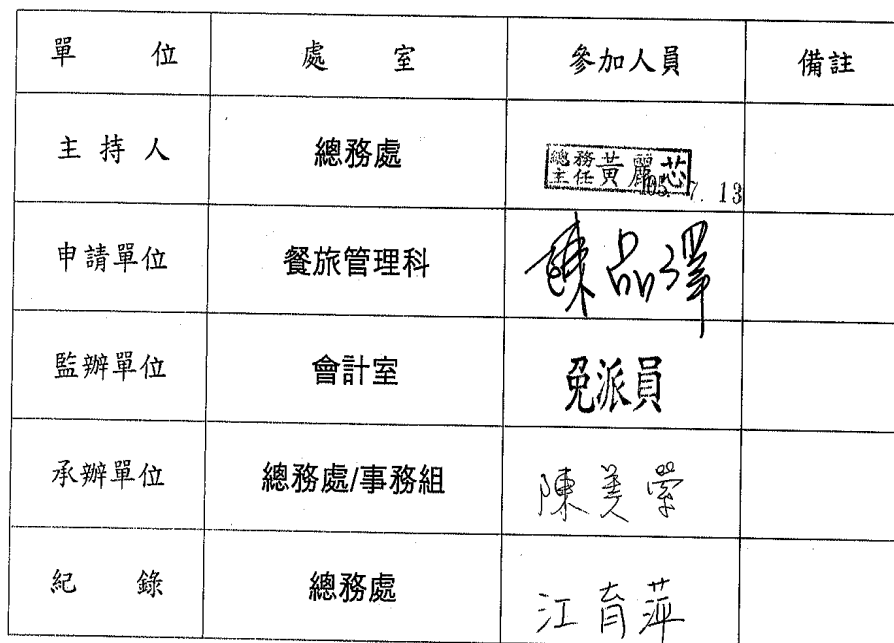 單 位 處 室 參加人員 備註
主 持 人 總務處 總務主任 黃麗芯 105. 7. 13
申請單位 餐旅管理科 陳品澤
監辦單位 會計室 免派員
承辦單位 總務處/事務組 陳美縈
紀 錄 總務處 江育萍